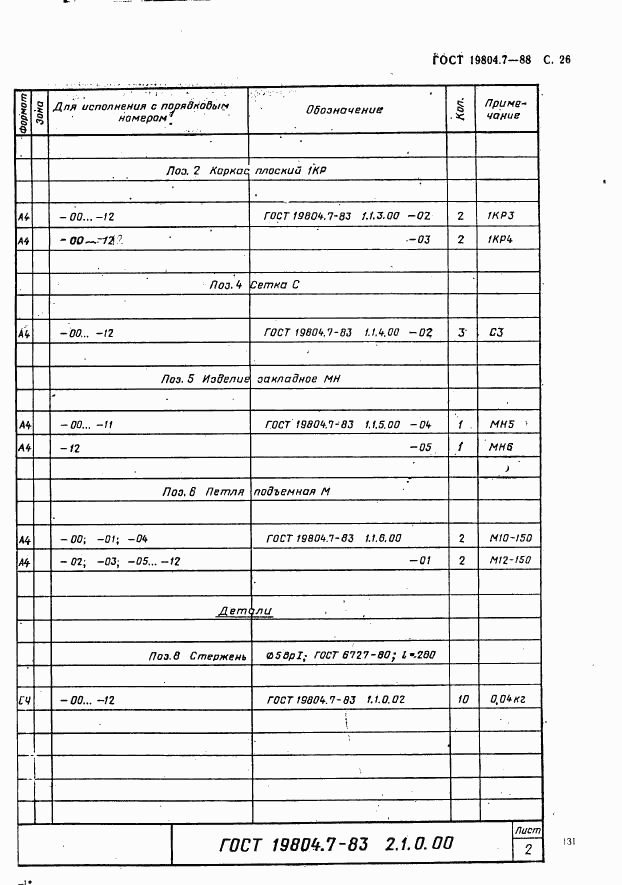 ГОСТ 19804.7—88 С. 26
Формат Зона Для исполнения с порядковым номером Обозначение Кол. Приме-
чание
Поз. 2 Каркас плоский 1КР
А4 -00... -12 ГОСТ 19804.7-83 1.1.3.00 -02 2 1КР3
А4 -00...-12 -03 2 1КР4
Поз. 4 Сетка С
А4 -00... -12 ГОСТ 19804.7-83 1.1.4.00 -02 3 С3
Поз. 5 Изделие закладное МН
А4 -00... -11 ГОСТ 19804.7-83 1.1.5.00 -04 1 МН5
А4 -12 -05 1 МН6
Поз. 6 Петля подъемная М
А4 -00; -01; -04 ГОСТ 19804.7-83 1.1.6.00 2 М10-150
А4 -02; -03; -05... -12 -01 2 М12-150
Детали
Поз. 8 Стержень ⌀5ВрI; ГОСТ 6727-80; l=280
СЧ -00... -12 ГОСТ 19804.7-83 1.1.0.02 10 0,04кг
ГОСТ 19804.7-83 2.1.0.00
Лист
2
131